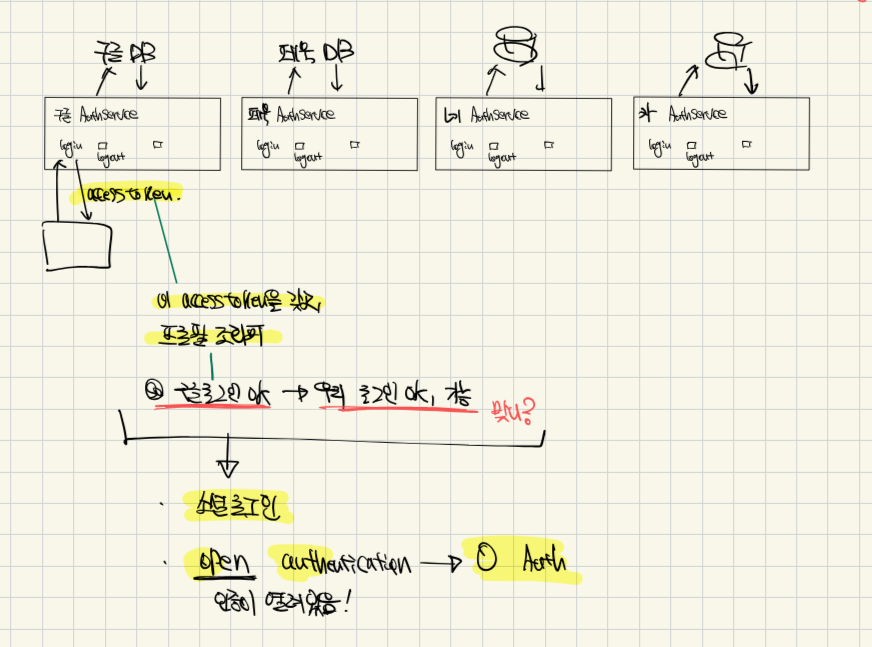 구글 DB
페북 DB
구글 AuthService
login
logout
페북 AuthService
login
logout
네 AuthService
login
logout
카 AuthService
login
logout
access token.
이 access token을 갖고,
프로필 조회까지
구글로그인 ok → 우리 로그인 ok, 가능
맞나?
· 소셜로그인
· open authentication → O Auth
인증이 열려있음!